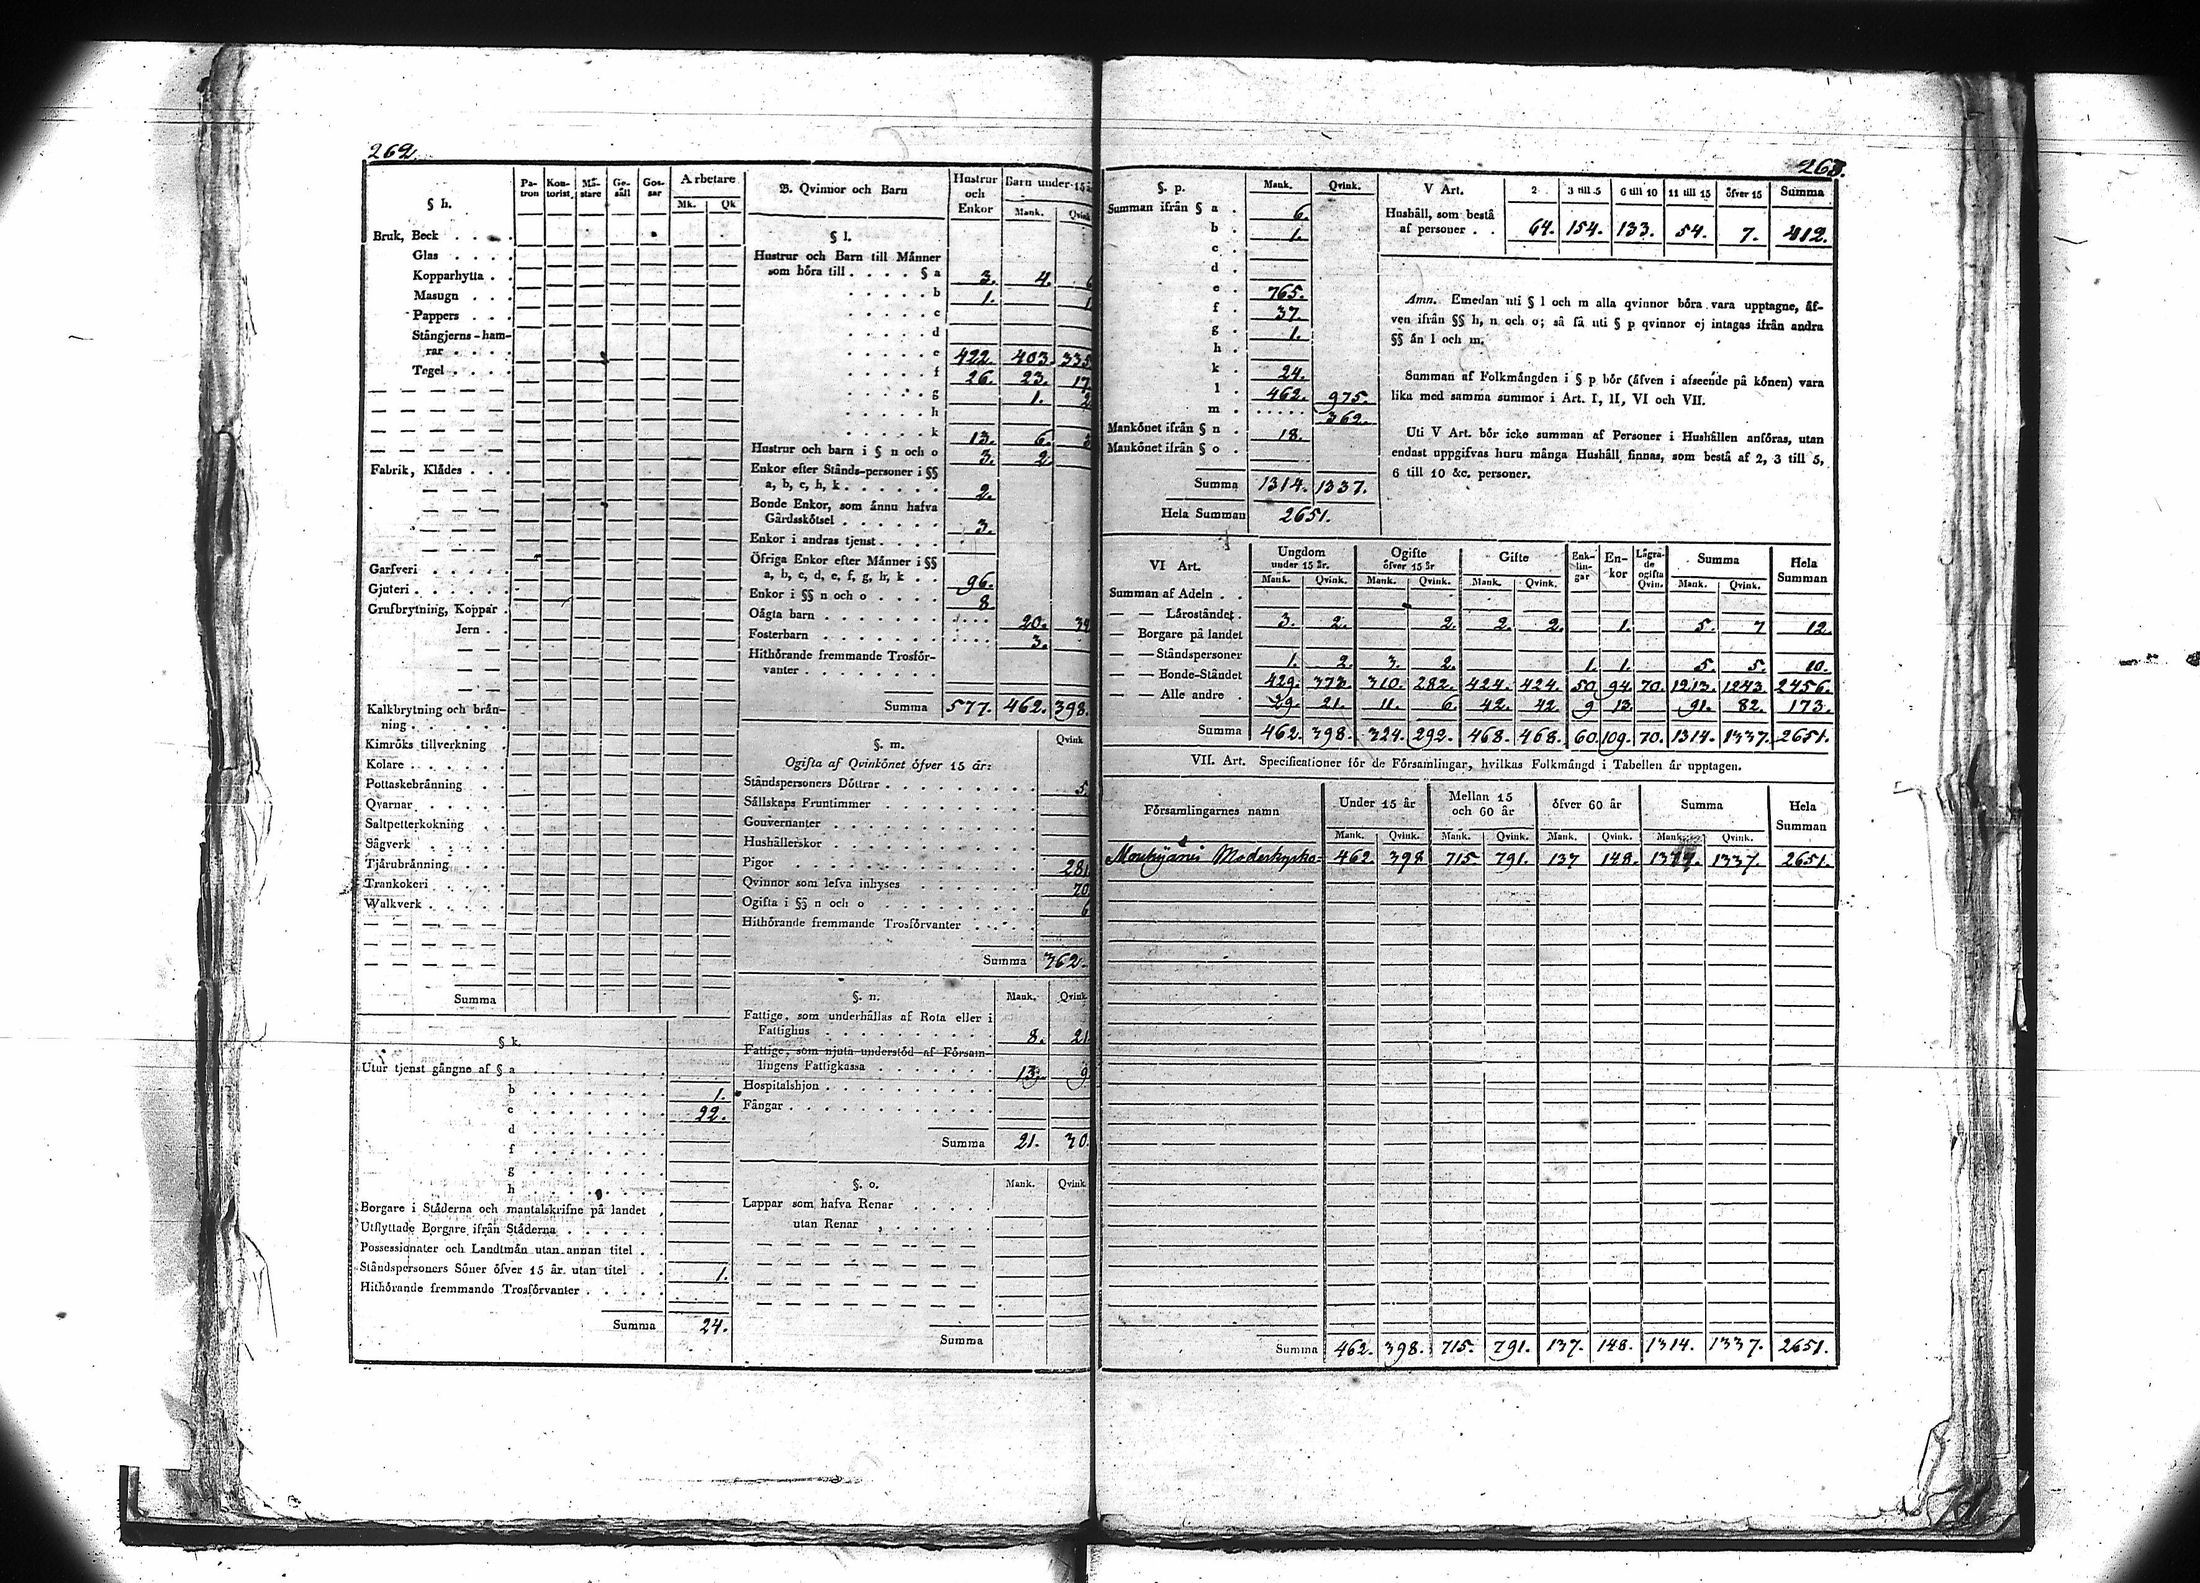 262
§ h.
Patron Kontorist Mästare Gesäll Gossar Arbetare
Mk. Qk
Bruk, Beck . . . .
Glas . . . .
Kopparhytta . .
Masugn . . .
Pappers . . .
Stångjerns-hamrar . . . .
Tegel . . . .
Fabrik, Klädes . . .
Garfveri . . . . .
Gjuteri . . . . . .
Grufbrytning, Koppar .
Jern . .
Kalkbrytning och bränning . . . . .
Kimröks tillverkning .
Kolare . . . . . .
Pottaskebränning . .
Qvarnar . . . . .
Saltpetterkokning . .
Sågverk . . . . .
Tjärubränning . . .
Trankokeri . . . .
Walkverk . . . . .
Summa
§ k.
Utur tjenst gångne af § a . . . . . . .
b . . . . . . . 1.
c . . . . . . . 22.
d . . . . . . .
f . . . . . . .
g . . . . . . .
h . . . . . . .
Borgare i Städerna och mantalskrifne på landet .
Utflyttade Borgare ifrån Städerna . . . . .
Possessionater och Landtmän utan annan titel . .
Ståndspersoners Söner öfver 15 år utan titel . . 1.
Hithörande fremmande Trosförvanter . . . . .
Summa 24.
B. Qvinnor och Barn
Hustrur och Enkor Barn under 15 år
Mank. Qvink
§ l.
Hustrur och Barn till Männer
som höra till . . . . § a 3. 4.
. . . . . b 1. 1
. . . . . c
. . . . . d
. . . . . e 422. 403. 335
. . . . . f 26. 23. 17
. . . . . g 1. 2
. . . . . h
. . . . . k 13. 6. 3
Hustrur och barn i § n och o 3. 2
Enkor efter Stånds-personer i §§
a, b, c, h, k . . . . . . 2.
Bonde Enkor, som ännu hafva
Gårdsskötsel . . . . . . 3.
Enkor i andras tjenst . . . .
Öfriga Enkor efter Männer i §§
a, b, c, d, e, f, g, h, k . . 96.
Enkor i §§ n och o . . . . 8
Oägta barn . . . . . . . 20. 34
Fosterbarn . . . . . . . 3.
Hithörande fremmande Trosförvanter . . . . . . . .
Summa 577. 462. 398.
§. m. Qvink
Ogifta af Qvinkönet öfver 15 år:
Ståndspersoners Döttrar . . . . . . . . . 5.
Sällskaps Fruntimmer . . . . . . . . .
Gouvernanter . . . . . . . . . . .
Hushållerskor . . . . . . . . . . .
Pigor . . . . . . . . . . . . . 281
Qvinnor som lefva inhyses . . . . . . . 70
Ogifta i §§ n och o . . . . . . . . . 6
Hithörande fremmande Trosförvanter . . . . .
Summa 362.
§. n. Mank. Qvink
Fattige, som underhållas af Rota eller i
Fattighus . . . . . . . . . . 8. 21
Fattige, som njuta understöd af Församlingens Fattigkassa . . . . . . . 13. 9
Hospitalshjon . . . . . . . . . .
Fångar . . . . . . . . . . . .
Summa 21. 30.
§. o. Mank. Qvink
Lappar som hafva Renar . . . . .
utan Renar . . . . . .
Summa
263.
§. p. Mank. Qvink.
Summan ifrån § a . 6.
b . 1.
c .
d .
e . 765.
f . 37.
g . 1.
h .
k . 24.
l . 462. 975.
m . . . . . . 362.
Mankönet ifrån § n . 18.
Mankönet ifrån § o .
Summa 1314. 1337.
Hela Summan 2651.
V Art. 2 3 till 5 6 till 10 11 till 15 öfver 15 Summa
Hushåll, som bestå
af personer . . 64. 154. 133. 54. 7. 412.
Anm. Emedan uti § l och m alla qvinnor böra vara upptagne, äf-
ven ifrån §§ h, n och o; så få uti § p qvinnor ej intagas ifrån andra
§§ än l och m.
Summan af Folkmängden i § p bör (äfven i afseende på könen) vara
lika med samma summor i Art. I, II, VI och VII.
Uti V Art. bör icke summan af Personer i Hushållen anföras, utan
endast uppgifvas huru många Hushåll finnas, som bestå af 2, 3 till 5,
6 till 10 &c. personer.
VI Art. Ungdom under 15 år. Ogifte öfver 15 år Gifte Enklingar Enkor Lägrade ogifta Qvin. Summa Hela Summan
Mank. Qvink. Mank. Qvink. Mank. Qvink. Mank. Qvink.
Summan af Adeln . .
— — Läroståndet . 3. 2. 2. 2. 2. 1. 5. 7 12.
— Borgare på landet
— — Ståndspersoner 1. 2. 3. 2. 1. 1. 5. 5. 10.
— — Bonde-Ståndet 429. 373. 310. 282. 424. 424. 50 94. 70. 1213. 1243 2456.
— — Alle andre . 29. 21. 11. 6. 42. 42 9 13 91. 82. 173.
Summa 462. 398. 324. 292. 468. 468. 60. 109. 70. 1314. 1337. 2651.
VII. Art. Specificationer för de Församlingar, hvilkas Folkmängd i Tabellen är upptagen.
Församlingarnes namn Under 15 år Mellan 15 och 60 år öfver 60 år Summa Hela Summan
Mank. Qvink. Mank. Qvink. Mank. Qvink. Mank. Qvink.
462 398 715 791. 137 148. 1314. 1337. 2651.
Summa 462. 398. 715. 791. 137. 148. 1314. 1337. 2651.